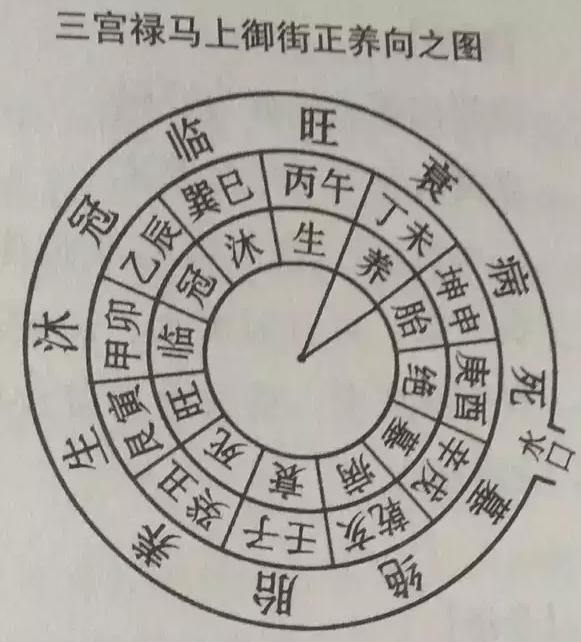 三宫禄马上御街正养向之图
旺
衰
病
死
水口
墓
绝
胎
养
生
沐
冠
临
丙午
丁未
坤申
庚酉
辛戌
乾亥
壬子
癸丑
艮寅
甲卯
乙辰
巽巳
生
养
胎
绝
墓
病
衰
死
旺
临
冠
沐